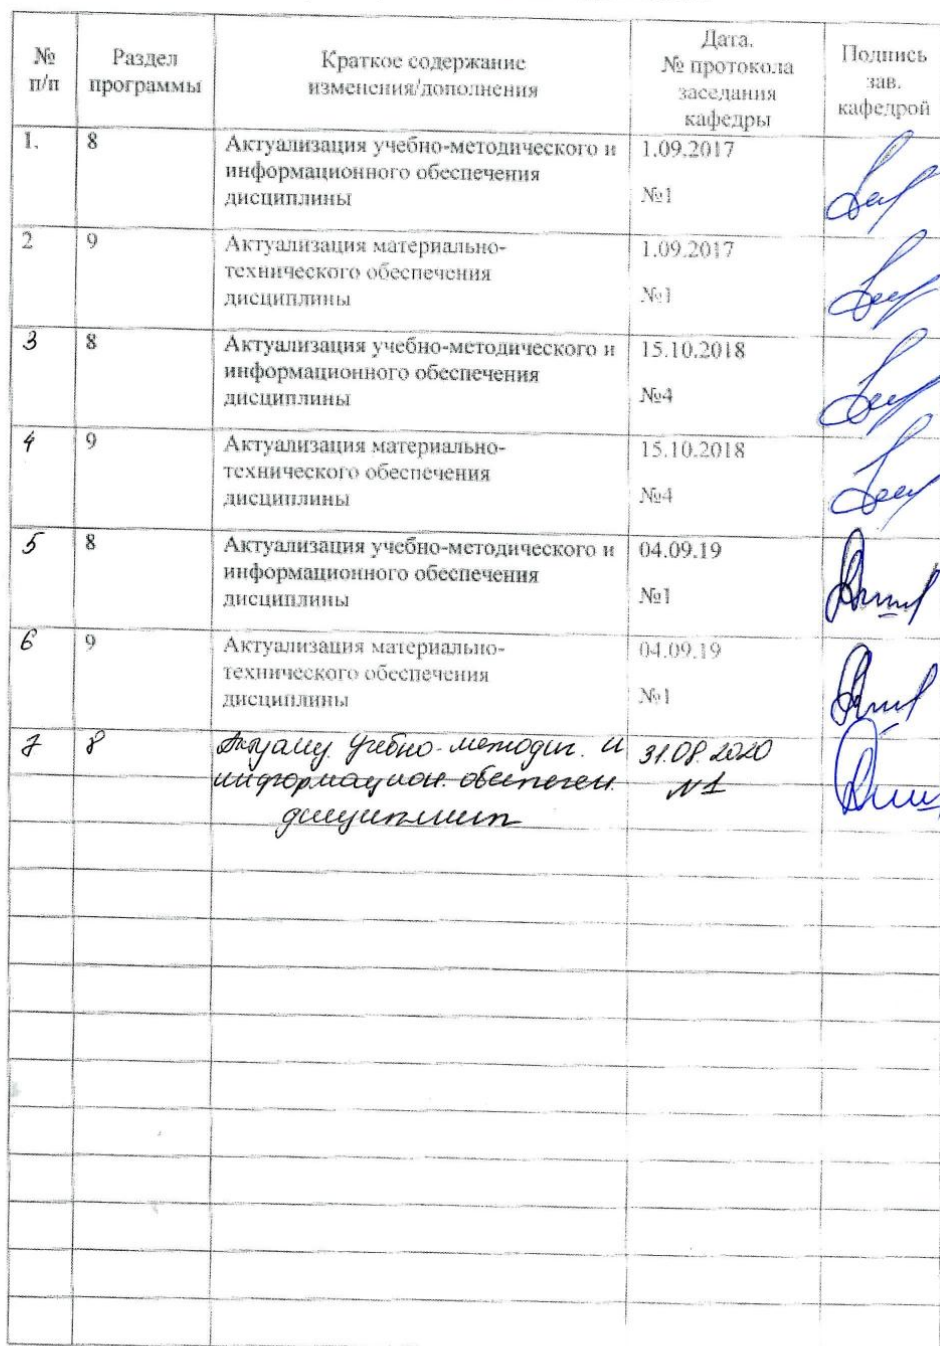 № п/п
Раздел программы
Краткое содержание изменения/дополнения
Дата. № протокола заседания кафедры
Подпись зав. кафедрой
1. 8 Актуализация учебно-методического и 1.09.2017
информационного обеспечения
дисциплины №1
2 9 Актуализация материально- 1.09.2017
технического обеспечения
дисциплины №1
3 8 Актуализация учебно-методического и 15.10.2018
информационного обеспечения
дисциплины №4
4 9 Актуализация материально- 15.10.2018
технического обеспечения
дисциплины №4
5 8 Актуализация учебно-методического и 04.09.19
информационного обеспечения
дисциплины №1
6 9 Актуализация материально- 04.09.19
технического обеспечения
дисциплины №1
7 8 Актуализ. учебно-методич. и 31.08.2020
информацион. обеспечен. №1
дисциплин